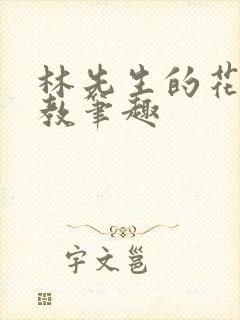 林先生的花
教笔趣
宇文邕